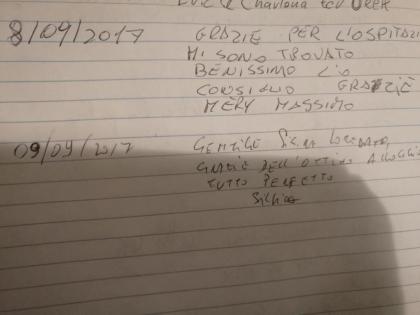 & Charlena
8/09/2017 GRAZIE PER L'OSPITAZI
MI SONO TROVATO
BENISSIMO L'O
CONSIGLIO GRAZIE
MERY MASSIMO
09/09/2017 GENTILE
GRAZIE DELL'OTTIMO ALLOGGI
TUTTO PERFETTO
Silvia